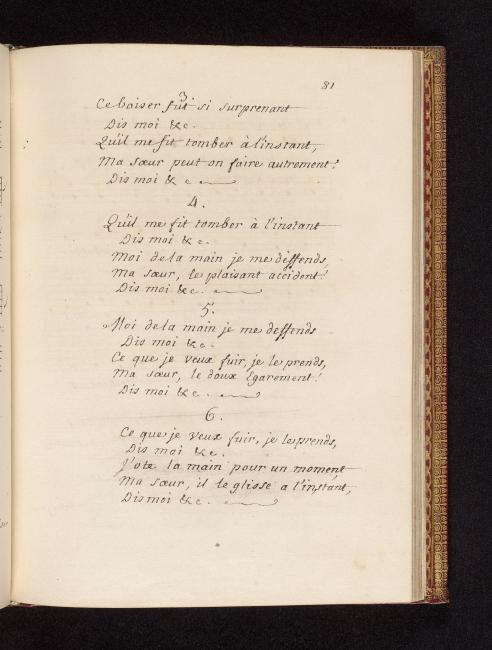 81
3
Ce baiser fut si surprenant
Dis moi &c.
Qu'il me fit tomber à l'instant,
Ma sœur peut on faire autrement?
Dis moi & c
4.
Qu'il me fit tomber à l'instant
Dis moi &c.
Moi de la main je me deffends,
Ma sœur, le plaisant accident!
Dis moi &c.
5.
Moi de la main je me deffends
Dis moi &c.
Ce que je veux fuir, je le prends,
Ma sœur, le doux Egarement!
Dis moi &c.
6.
Ce que je veux fuir, je le prends,
Dis moi &c.
J'ote la main pour un moment
Ma sœur, il le glisse a l'instant,
Dis moi &c.